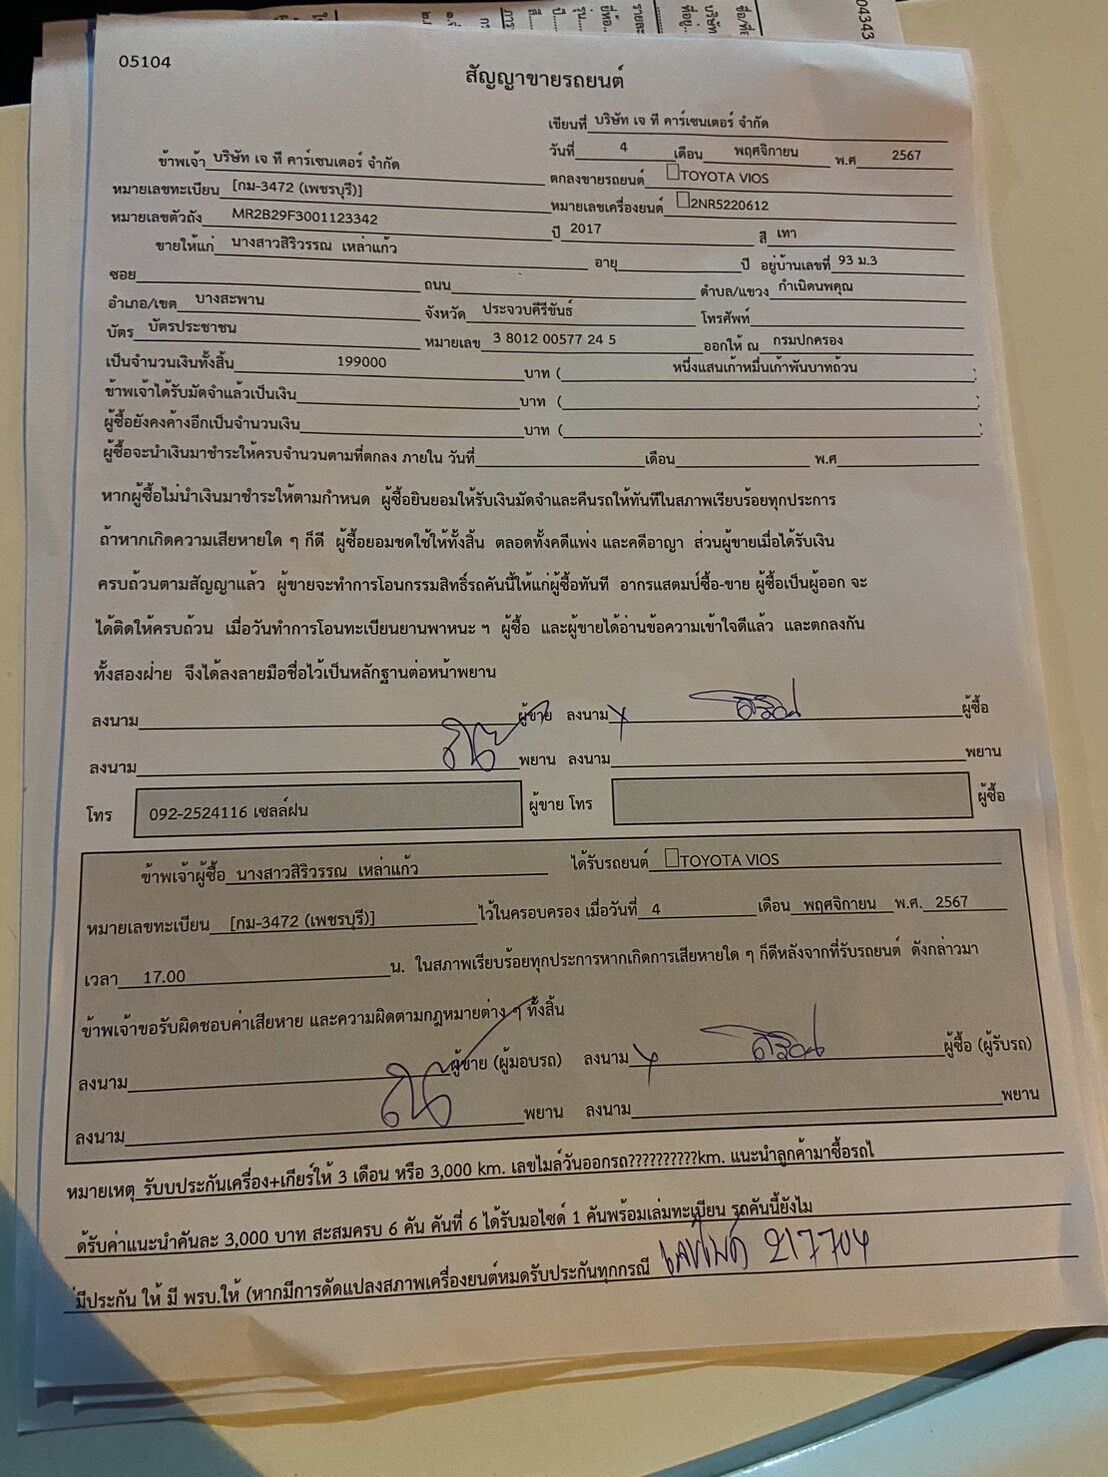 05104
สัญญาขายรถยนต์
เขียนที่ บริษัท เจ ที คาร์เซนเตอร์ จำกัด
วันที่ 4 เดือน พฤศจิกายน พ.ศ 2567
ข้าพเจ้า บริษัท เจ ที คาร์เซนเตอร์ จำกัด ตกลงขายรถยนต์ TOYOTA VIOS
หมายเลขทะเบียน [กม-3472 (เพชรบุรี)] หมายเลขเครื่องยนต์ 2NR5220612
หมายเลขตัวถัง MR2B29F3001123342 ปี 2017 สี เทา
ขายให้แก่ นางสาวสิริวรรณ เหล่าแก้ว อายุ ปี อยู่บ้านเลขที่ 93 ม.3
ซอย ถนน ตำบล/แขวง กำเนิดนพคุณ
อำเภอ/เขต บางสะพาน จังหวัด ประจวบคีรีขันธ์ โทรศัพท์
บัตร บัตรประชาชน หมายเลข 3 8012 00577 24 5 ออกให้ ณ กรมปกครอง
เป็นจำนวนเงินทั้งสิ้น 199000 บาท ( หนึ่งแสนเก้าหมื่นเก้าพันบาทถ้วน )
ข้าพเจ้าได้รับมัดจำแล้วเป็นเงิน บาท ( )
ผู้ซื้อยังคงค้างอีกเป็นจำนวนเงิน บาท ( )
ผู้ซื้อจะนำเงินมาชำระให้ครบจำนวนตามที่ตกลง ภายใน วันที่ เดือน พ.ศ
หากผู้ซื้อไม่นำเงินมาชำระให้ตามกำหนด ผู้ซื้อยินยอมให้รับเงินมัดจำและคืนรถให้ทันทีในสภาพเรียบร้อยทุกประการ
ถ้าหากเกิดความเสียหายใด ๆ ก็ดี ผู้ซื้อยอมชดใช้ให้ทั้งสิ้น ตลอดทั้งคดีแพ่ง และคดีอาญา ส่วนผู้ขายเมื่อได้รับเงิน
ครบถ้วนตามสัญญาแล้ว ผู้ขายจะทำการโอนกรรมสิทธิ์รถคันนี้ให้แก่ผู้ซื้อทันที อากรแสตมป์ซื้อ-ขาย ผู้ซื้อเป็นผู้ออก จะ
ได้ติดให้ครบถ้วน เมื่อวันทำการโอนทะเบียนยานพาหนะ ฯ ผู้ซื้อ และผู้ขายได้อ่านข้อความเข้าใจดีแล้ว และตกลงกัน
ทั้งสองฝ่าย จึงได้ลงลายมือชื่อไว้เป็นหลักฐานต่อหน้าพยาน
ลงนาม ผู้ขาย ลงนาม ผู้ซื้อ
ลงนาม พยาน ลงนาม พยาน
โทร 092-2524116 เซลล์ฝน ผู้ขาย โทร ผู้ซื้อ
ข้าพเจ้าผู้ซื้อ นางสาวสิริวรรณ เหล่าแก้ว ได้รับรถยนต์ TOYOTA VIOS
หมายเลขทะเบียน [กม-3472 (เพชรบุรี)] ไว้ในครอบครอง เมื่อวันที่ 4 เดือน พฤศจิกายน พ.ศ. 2567
เวลา 17.00 น. ในสภาพเรียบร้อยทุกประการหากเกิดการเสียหายใด ๆ ก็ดีหลังจากที่รับรถยนต์ ดังกล่าวมา
ข้าพเจ้าขอรับผิดชอบค่าเสียหาย และความผิดตามกฎหมายต่าง ๆ ทั้งสิ้น
ลงนาม ผู้ขาย (ผู้มอบรถ) ลงนาม ผู้ซื้อ (ผู้รับรถ)
ลงนาม พยาน ลงนาม พยาน
หมายเหตุ รับบประกันเครื่อง+เกียร์ให้ 3 เดือน หรือ 3,000 km. เลขไมล์วันออกรถ??????????km. แนะนำลูกค้ามาซื้อรถไ
ด้รับค่าแนะนำคันละ 3,000 บาท สะสมครบ 6 คัน คันที่ 6 ได้รับมอไซด์ 1 คันพร้อมเล่มทะเบียน รถคันนี้ยังไม
่มีประกัน ให้ มี พรบ.ให้ (หากมีการดัดแปลงสภาพเครื่องยนต์หมดรับประกันทุกกรณี เลขไมล์ 217704
04343